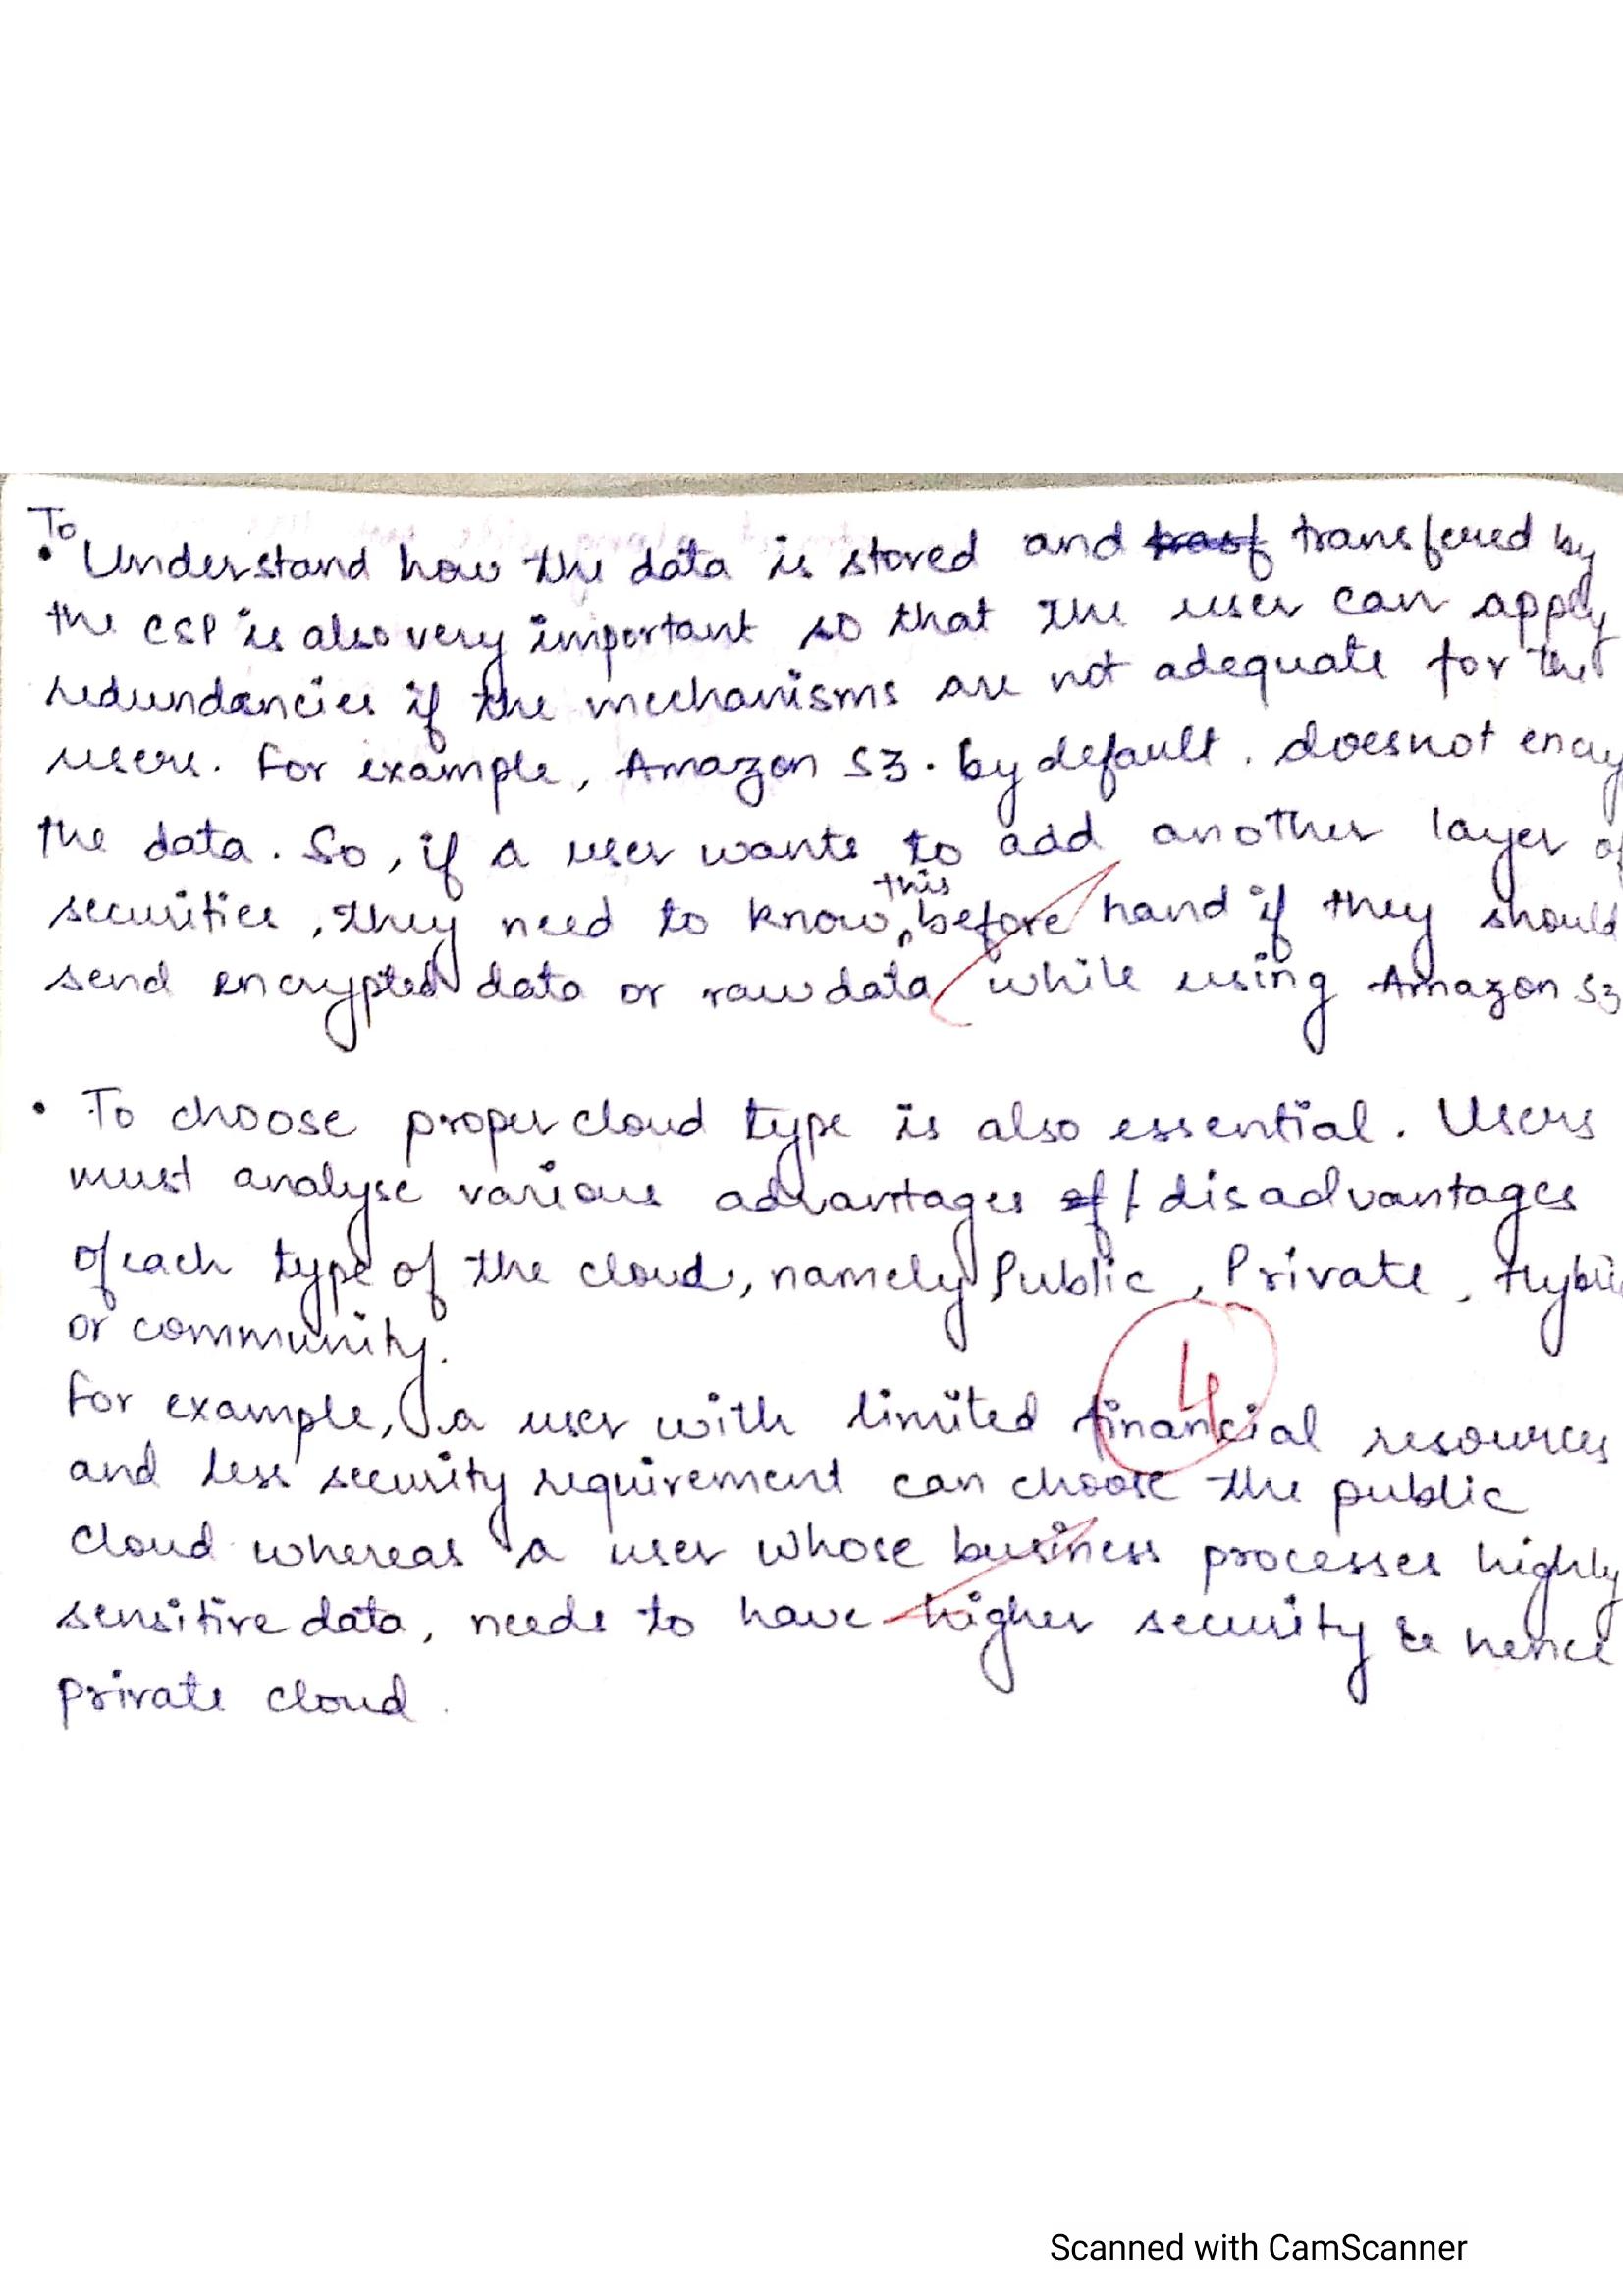 To
• Understand how the data is stored and trasf transfered by
the CSP is also very important so that the user can apply
redundancies if the mechanisms are not adequate for the
users. For example, Amazon S3. by default. doesnot ency
the data. So, if a user wants to add another layer of
this
securities, they need to know before hand if they should
send encrypted data or raw data while using Amazon S3
• To choose proper cloud type is also essential. Users
must analyse various advantages of / disadvantages
of each type of the cloud, namely Public, Private, Hybri
or community.
4
For example, a user with limited financial resources
and less security requirement can choose the public
cloud whereas a user whose business processes highly
sensitive data, needs to have higher security & hence
private cloud.
Scanned with CamScanner